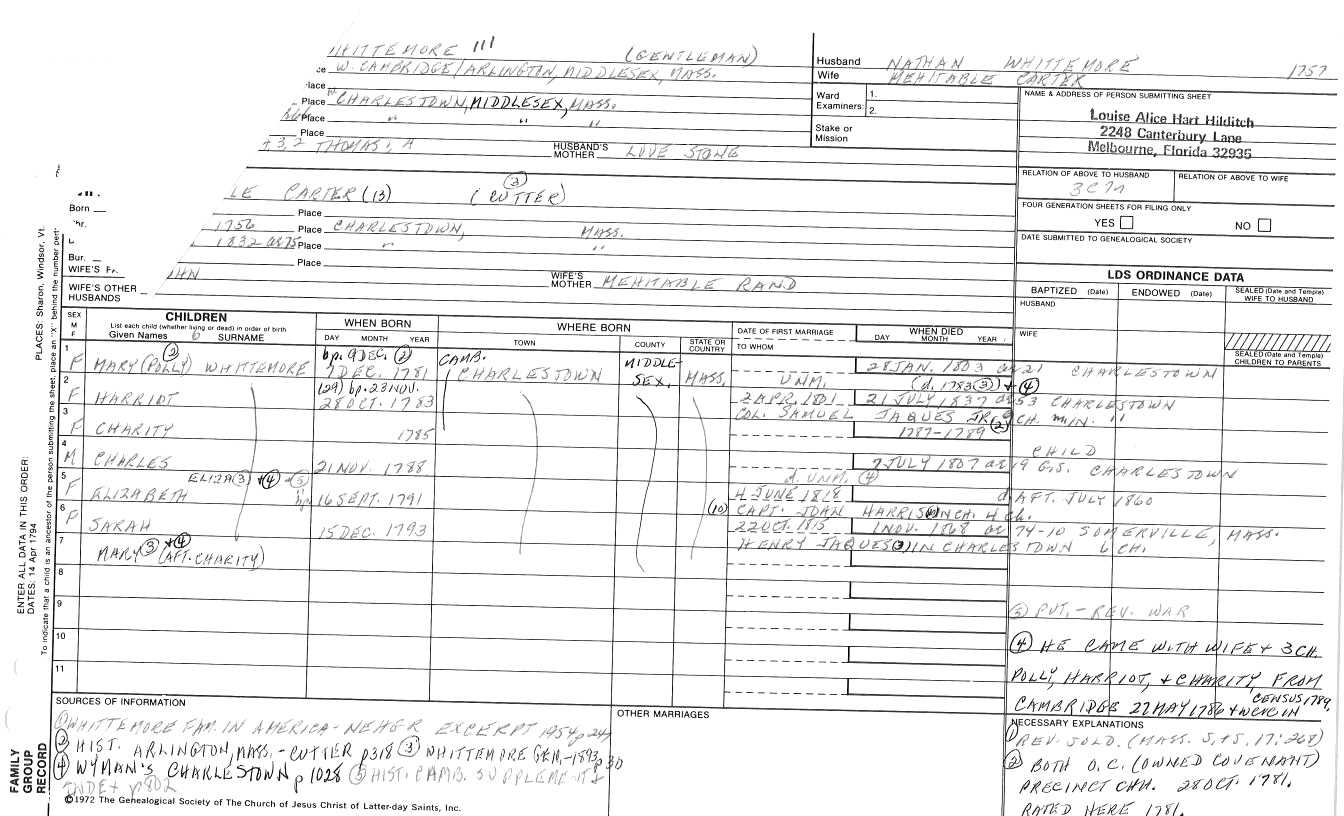 WHITTEMORE III (GENTLEMAN)
W. CAMBRIDGE/ARLINGTON, MIDDLESEX, MASS.
Place
Place CHARLESTOWN, MIDDLESEX, MASS.
Place " " "
+ 3, 2 THOMAS, A HUSBAND'S MOTHER LOVE STONE
Husband NATHAN WHITTEMORE 1757
Wife MEHITABLE CARTER
Ward Examiners: 1.
2.
Stake or Mission
NAME & ADDRESS OF PERSON SUBMITTING SHEET
Louise Alice Hart Hilditch
2248 Canterbury Lane
Melbourne, Florida 32935
RELATION OF ABOVE TO HUSBAND RELATION OF ABOVE TO WIFE
FOUR GENERATION SHEETS FOR FILING ONLY
YES NO
DATE SUBMITTED TO GENEALOGICAL SOCIETY
LE CARTER (13) (CUTTER) (2)
Born Place
1756 Place CHARLESTOWN, MASS.
1832 ae 75 Place " "
Bur. Place
WIFE'S FA. WIFE'S MOTHER MEHITABLE RAND
WIFE'S OTHER HUSBANDS
LDS ORDINANCE DATA
BAPTIZED (Date) ENDOWED (Date) SEALED (Date and Temple) WIFE TO HUSBAND
HUSBAND
WIFE
SEALED (Date and Temple) CHILDREN TO PARENTS
SEX M F
CHILDREN
List each child (whether living or dead) in order of birth
Given Names 6 SURNAME
WHEN BORN
DAY MONTH YEAR
WHERE BORN
TOWN COUNTY STATE OR COUNTRY
DATE OF FIRST MARRIAGE
TO WHOM
WHEN DIED
DAY MONTH YEAR
1 F MARY (POLLY) (3) WHITTEMORE bp. 9 DEC. (2) 7 DEC. 1781 CAMB. CHARLESTOWN MIDDLESEX, MASS. UNM. 28 JAN. 1803 ae 21 CHARLESTOWN
(d. 1783 (3)) + (4)
2 F HARRIOT (29) bp. 23 NOV. 28 OCT. 1783 2 APR. 1801 21 JULY 1837 ae 53 CHARLESTOWN
COL. SAMUEL JAQUES JR. 9 CH. MIN. "
3 F CHARITY 1785 1787-1789 (2) CHILD
4 M CHARLES 21 NOV. 1788 7 JULY 1807 ae 19 G.S. CHARLESTOWN
d. UNM. (4)
5 F ELIZA (3) + (4) + (5) ELIZABETH bp 16 SEPT. 1791 4 JUNE 1818 d AFT. JULY 1860
(10) CAPT. JOHN HARRISON CH. 4 CH.
6 F SARAH 15 DEC. 1793 22 OCT. 1815 1 NOV. 1868 ae 74-10 SOMERVILLE, MASS.
HENRY JAQUES (3) IN CHARLESTOWN 6 CH.
7 MARY (3) + (4) (AFT. CHARITY)
8
9
10
11
(5) PVT. - REV. WAR
(4) HE CAME WITH WIFE + 3 CH.
POLLY, HARRIOT, + CHARITY, FROM
CAMBRIDGE 22 MAY 1786 + WERE IN CENSUS 1789,
SOURCES OF INFORMATION
(1) WHITTEMORE FAM. IN AMERICA - NEHGR EXCERPT 1954 p 244
(2) HIST. ARLINGTON, MASS. - CUTTER p 318 (3) WHITTEMORE GEN. - 1893 p 30
(4) WYMAN'S CHARLESTOWN p 1028 (5) HIST. CAMB. SUPPLEMENT &
INDEX p 802
©1972 The Genealogical Society of The Church of Jesus Christ of Latter-day Saints, Inc.
OTHER MARRIAGES
NECESSARY EXPLANATIONS
(1) REV. SOLD. (MASS. S + S, 17:268)
(2) BOTH O.C. (OWNED COVENANT)
PRECINCT CHH. 28 OCT. 1781.
RATED HERE 1781.
FAMILY GROUP RECORD
ENTER ALL DATA IN THIS ORDER:
DATES: 14 Apr 1794
PLACES: Sharon, Windsor, Vt.
To indicate that a child is an ancestor of the person submitting the sheet, place an "X" behind the number pert